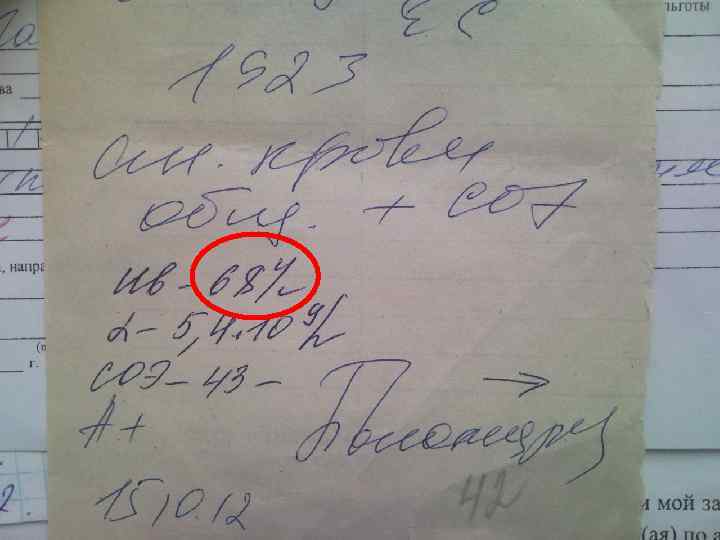 ЕС
1923
ан. крови
общ. + СОЭ
Нв - 68 г/л
L - 5,4·10 9/л
СОЭ - 43 -
А +
15.10.12
42
льготы
ва
а, напра
г.
и мой за
(ая) по а